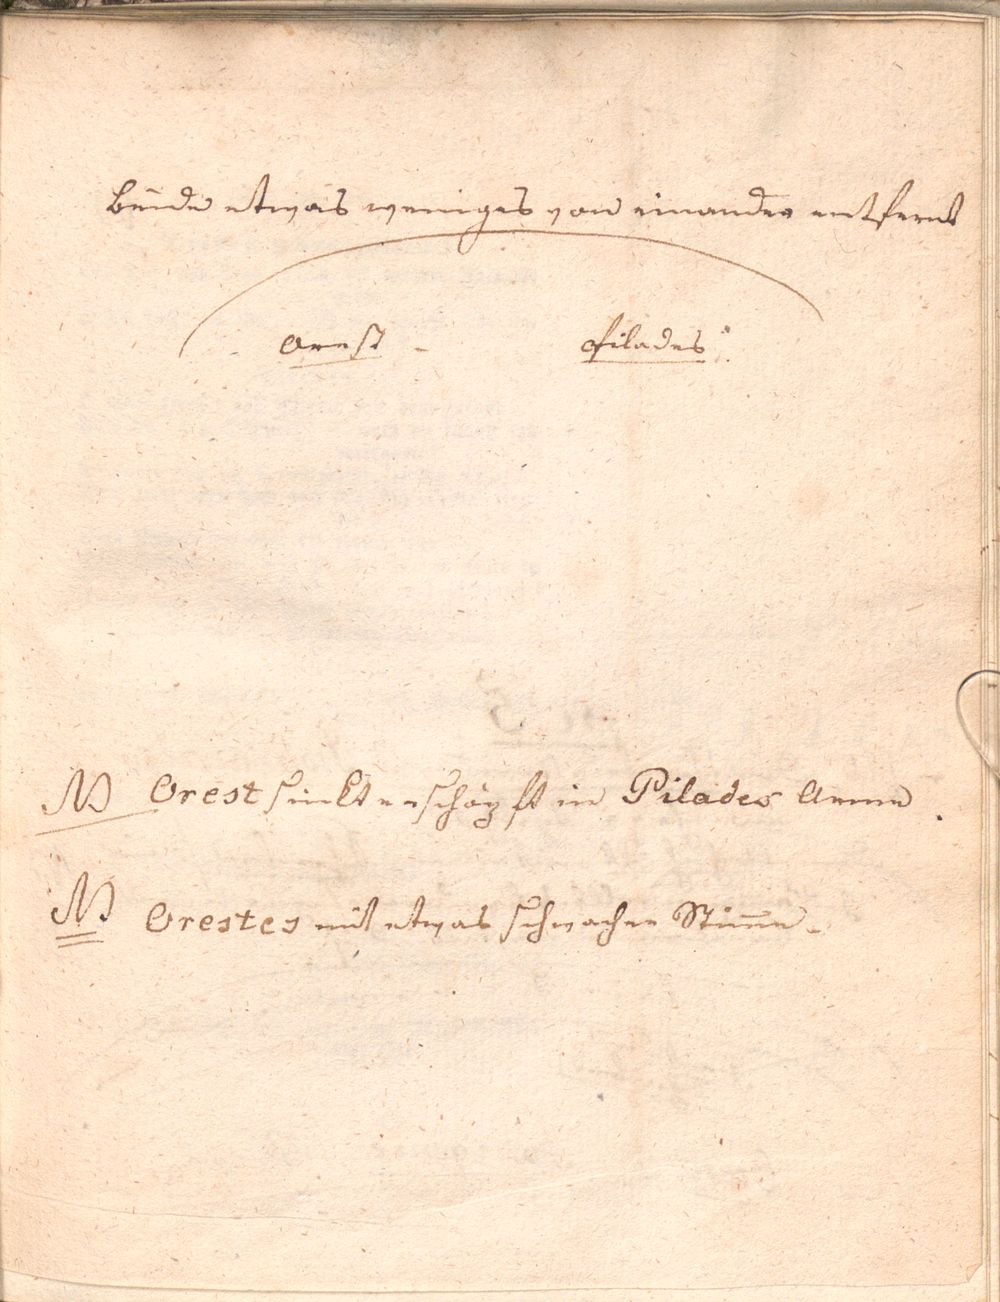 Beide etwas weniges von einander entfernt
Orest - Pilades.
NB Orest sinkt erschöpft in Pilades Arme.
NB Orestes mit etwas schwacher Stim̅e.